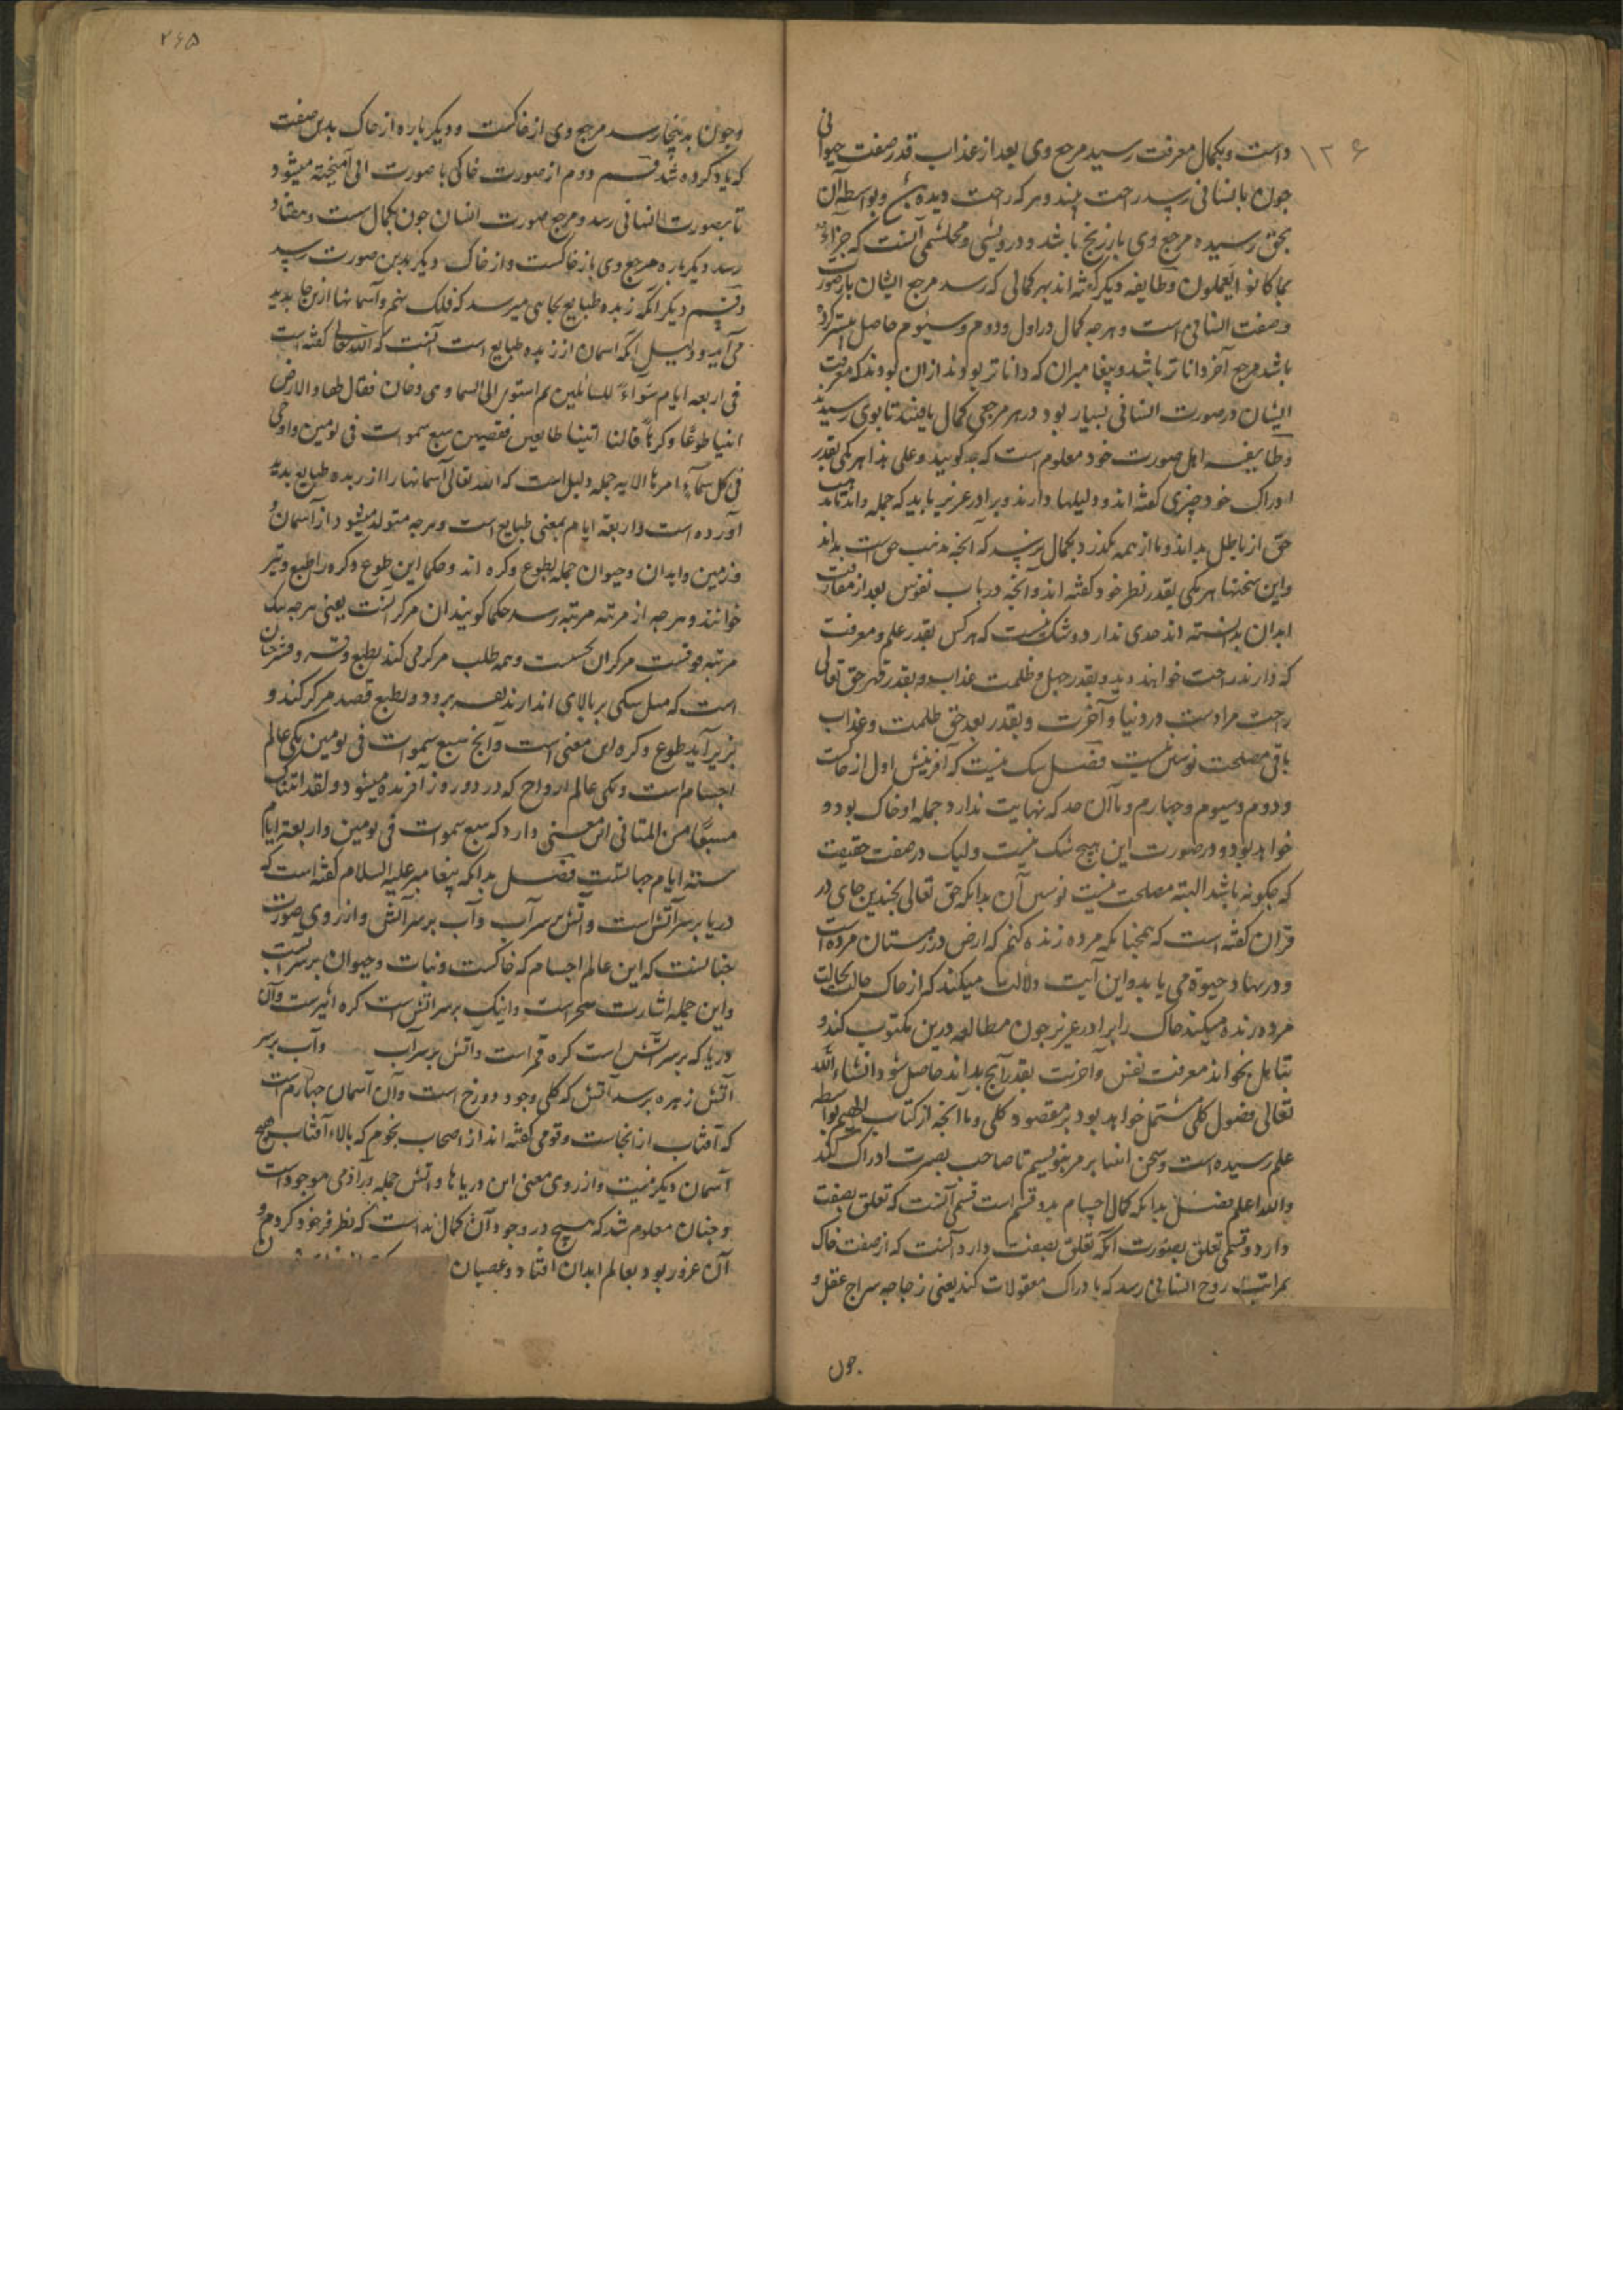 ۱۲۶
داست و بکمال معرفت رسید مرجع وی بعد از عذاب قدر صفت حیوانی
جون بانسانی رسد راحت بیند و هر که راحت دیده و بواسطه آن
بحق رسیده مرجع وی باز برنج باشد و درویشی و محتشمی آنست که جزاء
بما کانوا یعملون و طایفه دیکر کفته اند بهر کمالی که رسد مرجع ایشان باز صورت
و صفت انسانی است و هرجه کمال در اول و دوم و سیوم حاصل
باشد مرجع آخر داناتر باشد و پیغامبران که داناتر بودند از ان بودند که معرفت
ایشان در صورت انسانی بسیار بود در هر مرجعی کمال یافتند تا بوی رسیدند
و طایفه اهل صورت خود معلوم است که جه کویند و علی هذا هر یکی بقدر
ادراک خود چیزی کفته اند و دلیلها دارند و برادر عزیز باید که جمله داند تا
حق از باطل بداند و تا از همه بکذرد بکمال نرسد که آنجه مذهب حق است بداند
و این سخنها هر یکی بقدر نظر خود کفته اند و آنجه در باب نفوس بعد از مفارقت
ابدان بدانسته اند حدی ندارد و شک نیست که هر کس بقدر علم و معرفت
که دارند راحت خواهند دید و بقدر جهل و ظلمت عذاب و بقدر قهر حق تعالی
راحت مرادست در دنیا و آخرت و بقدر بعد حق ظلمت و عذاب
باقی مصلحت نوشتن نیست فصل شک نیست که آفرینش اول از خاکست
و دوم و سیوم و جهارم و تا آن حد که نهایت ندارد جمله او خاک بود و
خواهد بود و در صورت این هیچ شک نیست ولیک در صفت حقیقت
که جکونه باشد البته مصلحت نیست نوشتن آن بدانکه حق تعالی بجندین جای در
قران کفته است که همجنانکه مرده زنده کنم که ارض در زمستان مرده است
و در بهار حیوة می یابد و این آیت دلالت میکند که از خاک حالت بحالت
مرده زنده میکند خاک را برادر عزیز جون مطالعه درین مکتوب کند و
بتأمل بخواند معرفت نفس و آخرت بقدر آنج بداند حاصل شود انشاء الله
تعالی فصول کلی مشتمل خواهد بود بر مقصود کلی و تا آنجه از کتاب بواسطه
علم رسیده است و سخن انبیا بر مر بنویسیم تا صاحب بصیرت ادراک کند
والله اعلم فصل بدانکه کمال اجسام بدو قسم است قسمی آنست که تعلق بصفت
دارد و قسمی تعلق بصورت آنکه تعلق بصفت دارد آنست که از صفت خاک
بمراتب روح انسانی رسد که بادراک معقولات کند یعنی زجاجه سراج عقل و
جون
۲۶۵
و جون بدینجا رسد مرجع وی از خاکست و دیکر باره از خاک بدین صفت
که یاد کرده شد قسم دوم از صورت خاکی با صورت آمیخته میشود
تا بصورت انسانی رسد و مرجع صورت انسان جون بکمال
رسد دیکر باره مرجع وی باز خاکست و از خاک دیکر بدین صورت رسد
و قسم دیکر آنکه زبده طبایع بجایی میرسد که فلک نهم و آسمانها از نجا پدید
می آید و دلیل آنکه اسمان از زبده طبایع است آنست که الله تعالی کفته است
فی اربعه ایام سواءً للسائلین ثم استوی الی السما و هی دخان فقال لها و الارض
ائتیا طوعًا و کرهاً قالتا اتینا طایعین فقضیهن سبع سموات فی یومین و اوحی
فی کل سمآءٍ امرها الایه جمله دلیل است که الله تعالی آسمانها را از زبده طبایع پدید
آورده است و اربعة ایام بمعنی طبایع است و هرجه متولد میشود از آسمان و
زمین و ابدان و حیوان جمله بطوع و کره اند و حکما این طوع و کره را طبع و قسر
خوانند و هرجه از مرتبه مرتبه رسد حکما کویند آن مرکز آنست یعنی هرجه یک
مرتبه فوقست مرکز آن تحتست و همه طلب مرکز می کند بطبع و قسر و قسر جنان
است که مثل سنکی بر بالای اندازند بقسر برود و بطبع قصد مرکز کند و
بزیر آید طوع و کره این معنی است و آنج سبع سموات فی یومین یکی عالم
اجسام است و یکی عالم ارواح که در دو روز آفریده میشود و لقد اتیناک
سبعًا من المثانی این معنی دارد که سبع سموات فی یومین و اربعة ایام
ستة ایام جهاتست فصل بدانکه پیغامبر علیه السلام کفته است که
دریا بر سر آتش است و آتش بر سر آب و آب بر سر آتش و از روی صورت
جنانست که این عالم اجسام که خاکست و نبات و حیوان بر سر آبست
و این جمله اشارت صحراست و اینک بر سر اتش است کره اثیرست و آن
دریا که بر سر آتش است کره قمر است و آتش بر سر آب و آب بر سر
آتش زهره بر سر آتش که کلی وجود دوزخ است و آن آسمان جهارم است
که آفتاب از آنجاست و قومی کفته اند از اصحاب نجوم که بالاء آفتاب هیچ
آسمان دیکر نیست و از روی معنی این دریاها و آتش جمله در آدمی موجود است
و جنان معلوم شد که هیچ در وجود آن کمال ندا است که نظر فرخود کردم و
آن غرور بود بعالم ابدان افتاد و عصیان